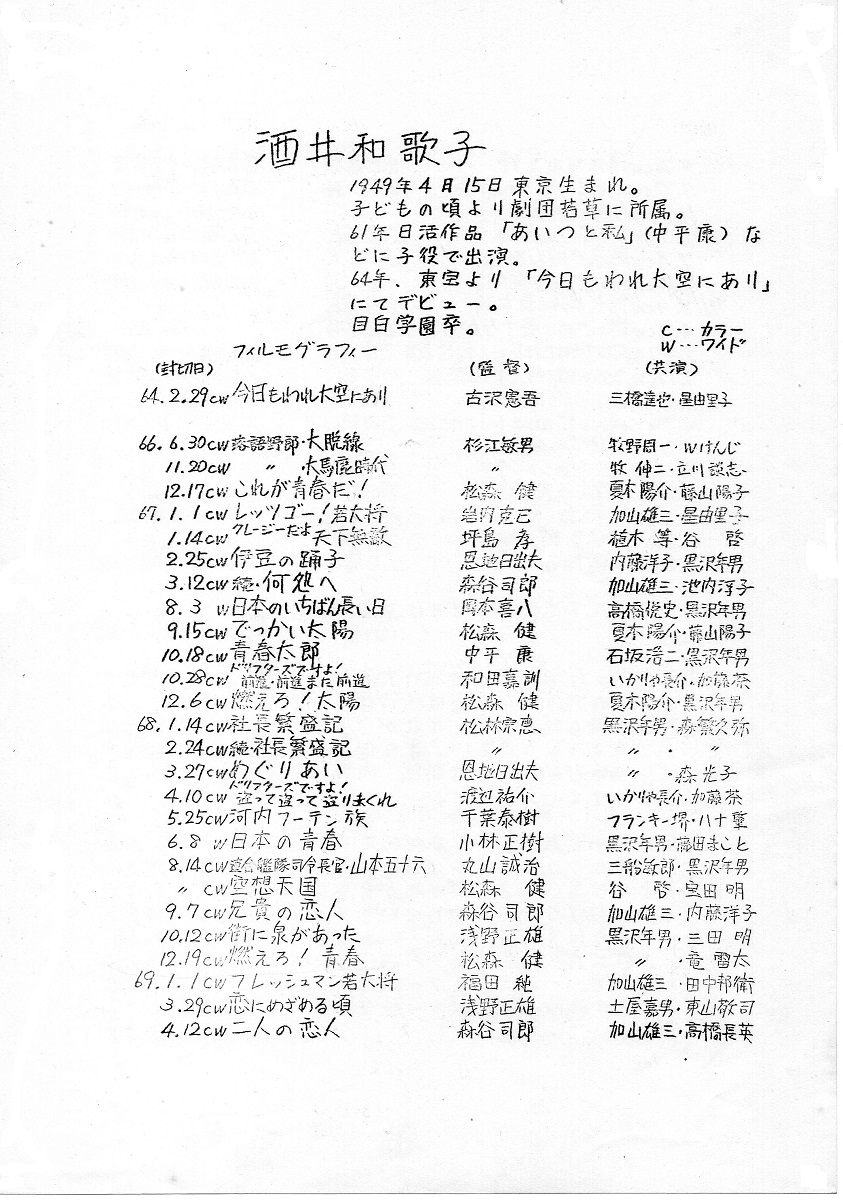 酒井和歌子
1949年4月15日東京生まれ。
子どもの頃より劇団若草に所属。
61年日活作品「あいつと私」(中平康)な
どに子役で出演。
64年、東宝より「今日もわれ大空にあり」
にてデビュー。
目白学園卒。
C…カラー
W…ワイド
フィルモグラフィー
(封切日) (監督) (共演)
64.2.29CW今日もわれ大空にあり 古沢憲吾 三橋達也・星由里子
66.6.30CW落語野郎・大脱線 杉江敏男 牧野周一・Wけんじ
11.20CW 〃 ・大馬鹿時代 〃 牧伸二・立川談志
12.17CWこれが青春だ! 松森 健 夏木陽介・藤山陽子
67.1.1CWレッツゴー!若大将 岩内克己 加山雄三・星由里子
1.14CWクレージーだよ天下無敵 坪島 孝 植木 等・谷 啓
2.25CW伊豆の踊子 恩地日出夫 内藤洋子・黒沢年男
3.12CW続・何処へ 森谷司郎 加山雄三・池内淳子
8.3 W日本のいちばん長い日 岡本喜八 高橋悦史・黒沢年男
9.15CWでっかい太陽 松森 健 夏木陽介・藤山陽子
10.18CW青春太郎 中平 康 石坂浩二・黒沢年男
10.28CWドリフターズですよ!前進・前進また前進 和田嘉訓 いかりや長介・加藤茶
12.6CW燃えろ!太陽 松森 健 夏木陽介・黒沢年男
68.1.14CW社長繁盛記 松林宗恵 黒沢年男・森繁久弥
2.24CW続社長繁盛記 〃 〃・〃
3.27CWめぐりあい 恩地日出夫 〃・森光子
4.10CWドリフターズですよ!盗って盗って盗りまくれ 渡辺祐介 いかりや長介・加藤茶
5.25CW河内フーテン族 千葉泰樹 フランキー堺・八千草
6.8 W日本の青春 小林正樹 黒沢年男・藤田まこと
8.14CW連合艦隊司令長官・山本五十六 丸山誠治 三船敏郎・黒沢年男
〃 CW空想天国 松森 健 谷 啓・宝田明
9.7CW兄貴の恋人 森谷司郎 加山雄三・内藤洋子
10.12CW街に泉があった 浅野正雄 黒沢年男・三田明
12.19CW燃えろ!青春 松森 健 〃・竜雷太
69.1.1CWフレッシュマン若大将 福田 純 加山雄三・田中邦衛
3.29CW恋にめざめる頃 浅野正雄 土屋嘉男・東山敬司
4.12CW二人の恋人 森谷司郎 加山雄三・高橋長英